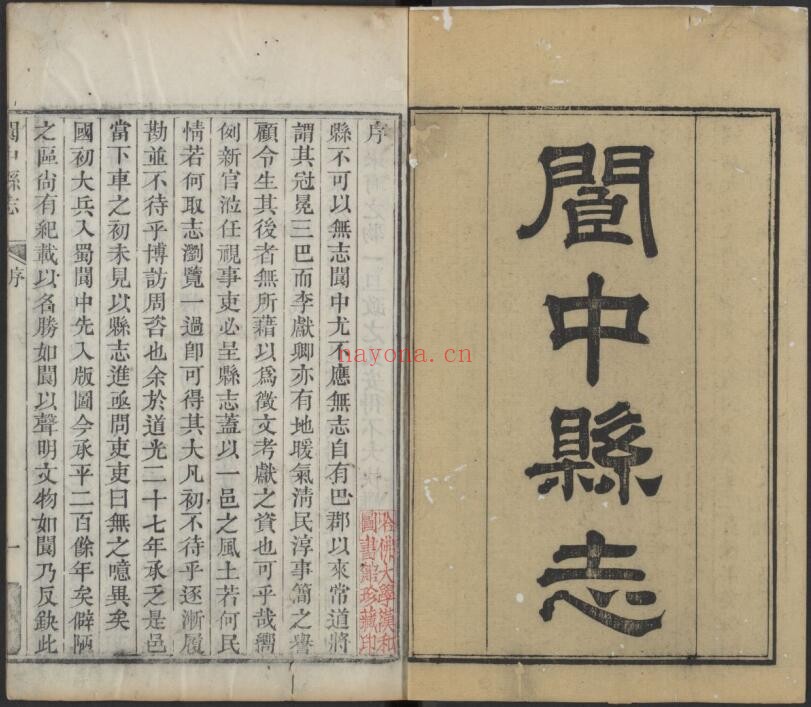 閬中縣志
序
縣不可以無志閬中尤不應無志自有巴郡以來常道將
謂其冠冕三巴而李獻卿亦有地暖氣淸民淳事簡之譽
顧令生其後者無所藉以爲徵文考獻之資也可乎哉嚮
例新官涖任視事吏必呈縣志蓋以一邑之風土若何民
情若何取志瀏覽一過卽可得其大凡初不待乎逐漸履
勘並不待乎博訪周咨也余於道光二十七年承乏是邑
當下車之初未見以縣志進亟問吏吏曰無之噫異矣
國初大兵入蜀閬中先入版圖今承平二百餘年矣僻陋
之區尙有紀載以名勝如閬以聲明文物如閬乃反缺此
閬中縣志
序
一
哈佛大學漢和
圖書館珍藏印
hayona.cn